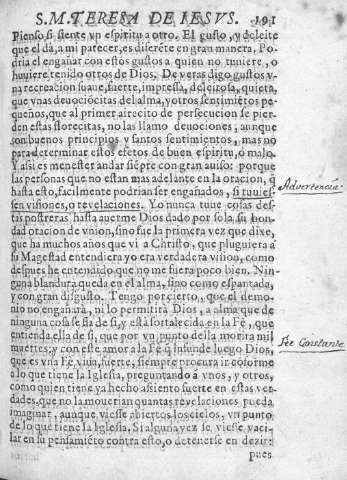 S. M. TERESA DE IESVS. 191
Pienso, si siente vn espiritu a otro. El gusto, y deleite
que el dà, a mi parecer, es diferẽte en gran manera, Po-
dria el engañar con estos gustos a quien no tuuiere, o
huuiere tenido otros de Dios. De veras digo gustos v-
na recreacion suaue, fuerte, impressa, deleitosa, quieta,
que vnas deuociõcitas del alma, y otros sentimiẽtos pe-
queños, que al primer airecito de persecucion se pier-
den estas florecitas, no las llamo deuociones, aunque
son buenos principios, y santos sentimientos, mas no
para determinar estos efetos de buen espiritu, ò malo.
Y assi es menester andar siẽpre con gran auiso: porque
las personas que no estan mas adelante en la oracion, q̃
hasta esto, facilmente podrian ser engañados, si tuuies-
sen visiones, o reuelaciones. Yo nunca tuue cosas des-
tas postreras hasta auerme Dios dado por sola su bon-
dad oracion de vnion, sino fue la primera vez que dixe,
que ha muchos años que vi a Christo, que pluguiera a
su Magestad entendiera yo era verdadera visiou, como
despues he entendido, que no me fuera poco bien. Nin-
guna blandura queda en el alma, sino como espantada,
y con gran disgusto. Tengo por cierto, que el demo-
nio no engañarà, ni lo permitirà Dios, a alma que de
ninguna cosa se fia de sì, y està fortalecida en la Fè, que
entienda ella de sì, que por vn punto della morirà mil
muertes: y con este amor a la Fè, q̃ infunde luego Dios,
que es vna Fè viua, fuerte, siempre procura ir cõforme
a lo que tiene la Iglesia, preguntando a vnos, y otros,
como quien tiene ya hecho assiento fuerte en estas ver-
dades, que no la mouerian quantas reuelaciones pueda
imaginar, aunque viesse abiertos los cielos, vn punto
de lo que tiene la Iglesia. Si alguna vez se viesse vaci-
lar en su pensamiẽto contra esto, o detenerse en dezir:
pues
Advertencia
Fee Constante